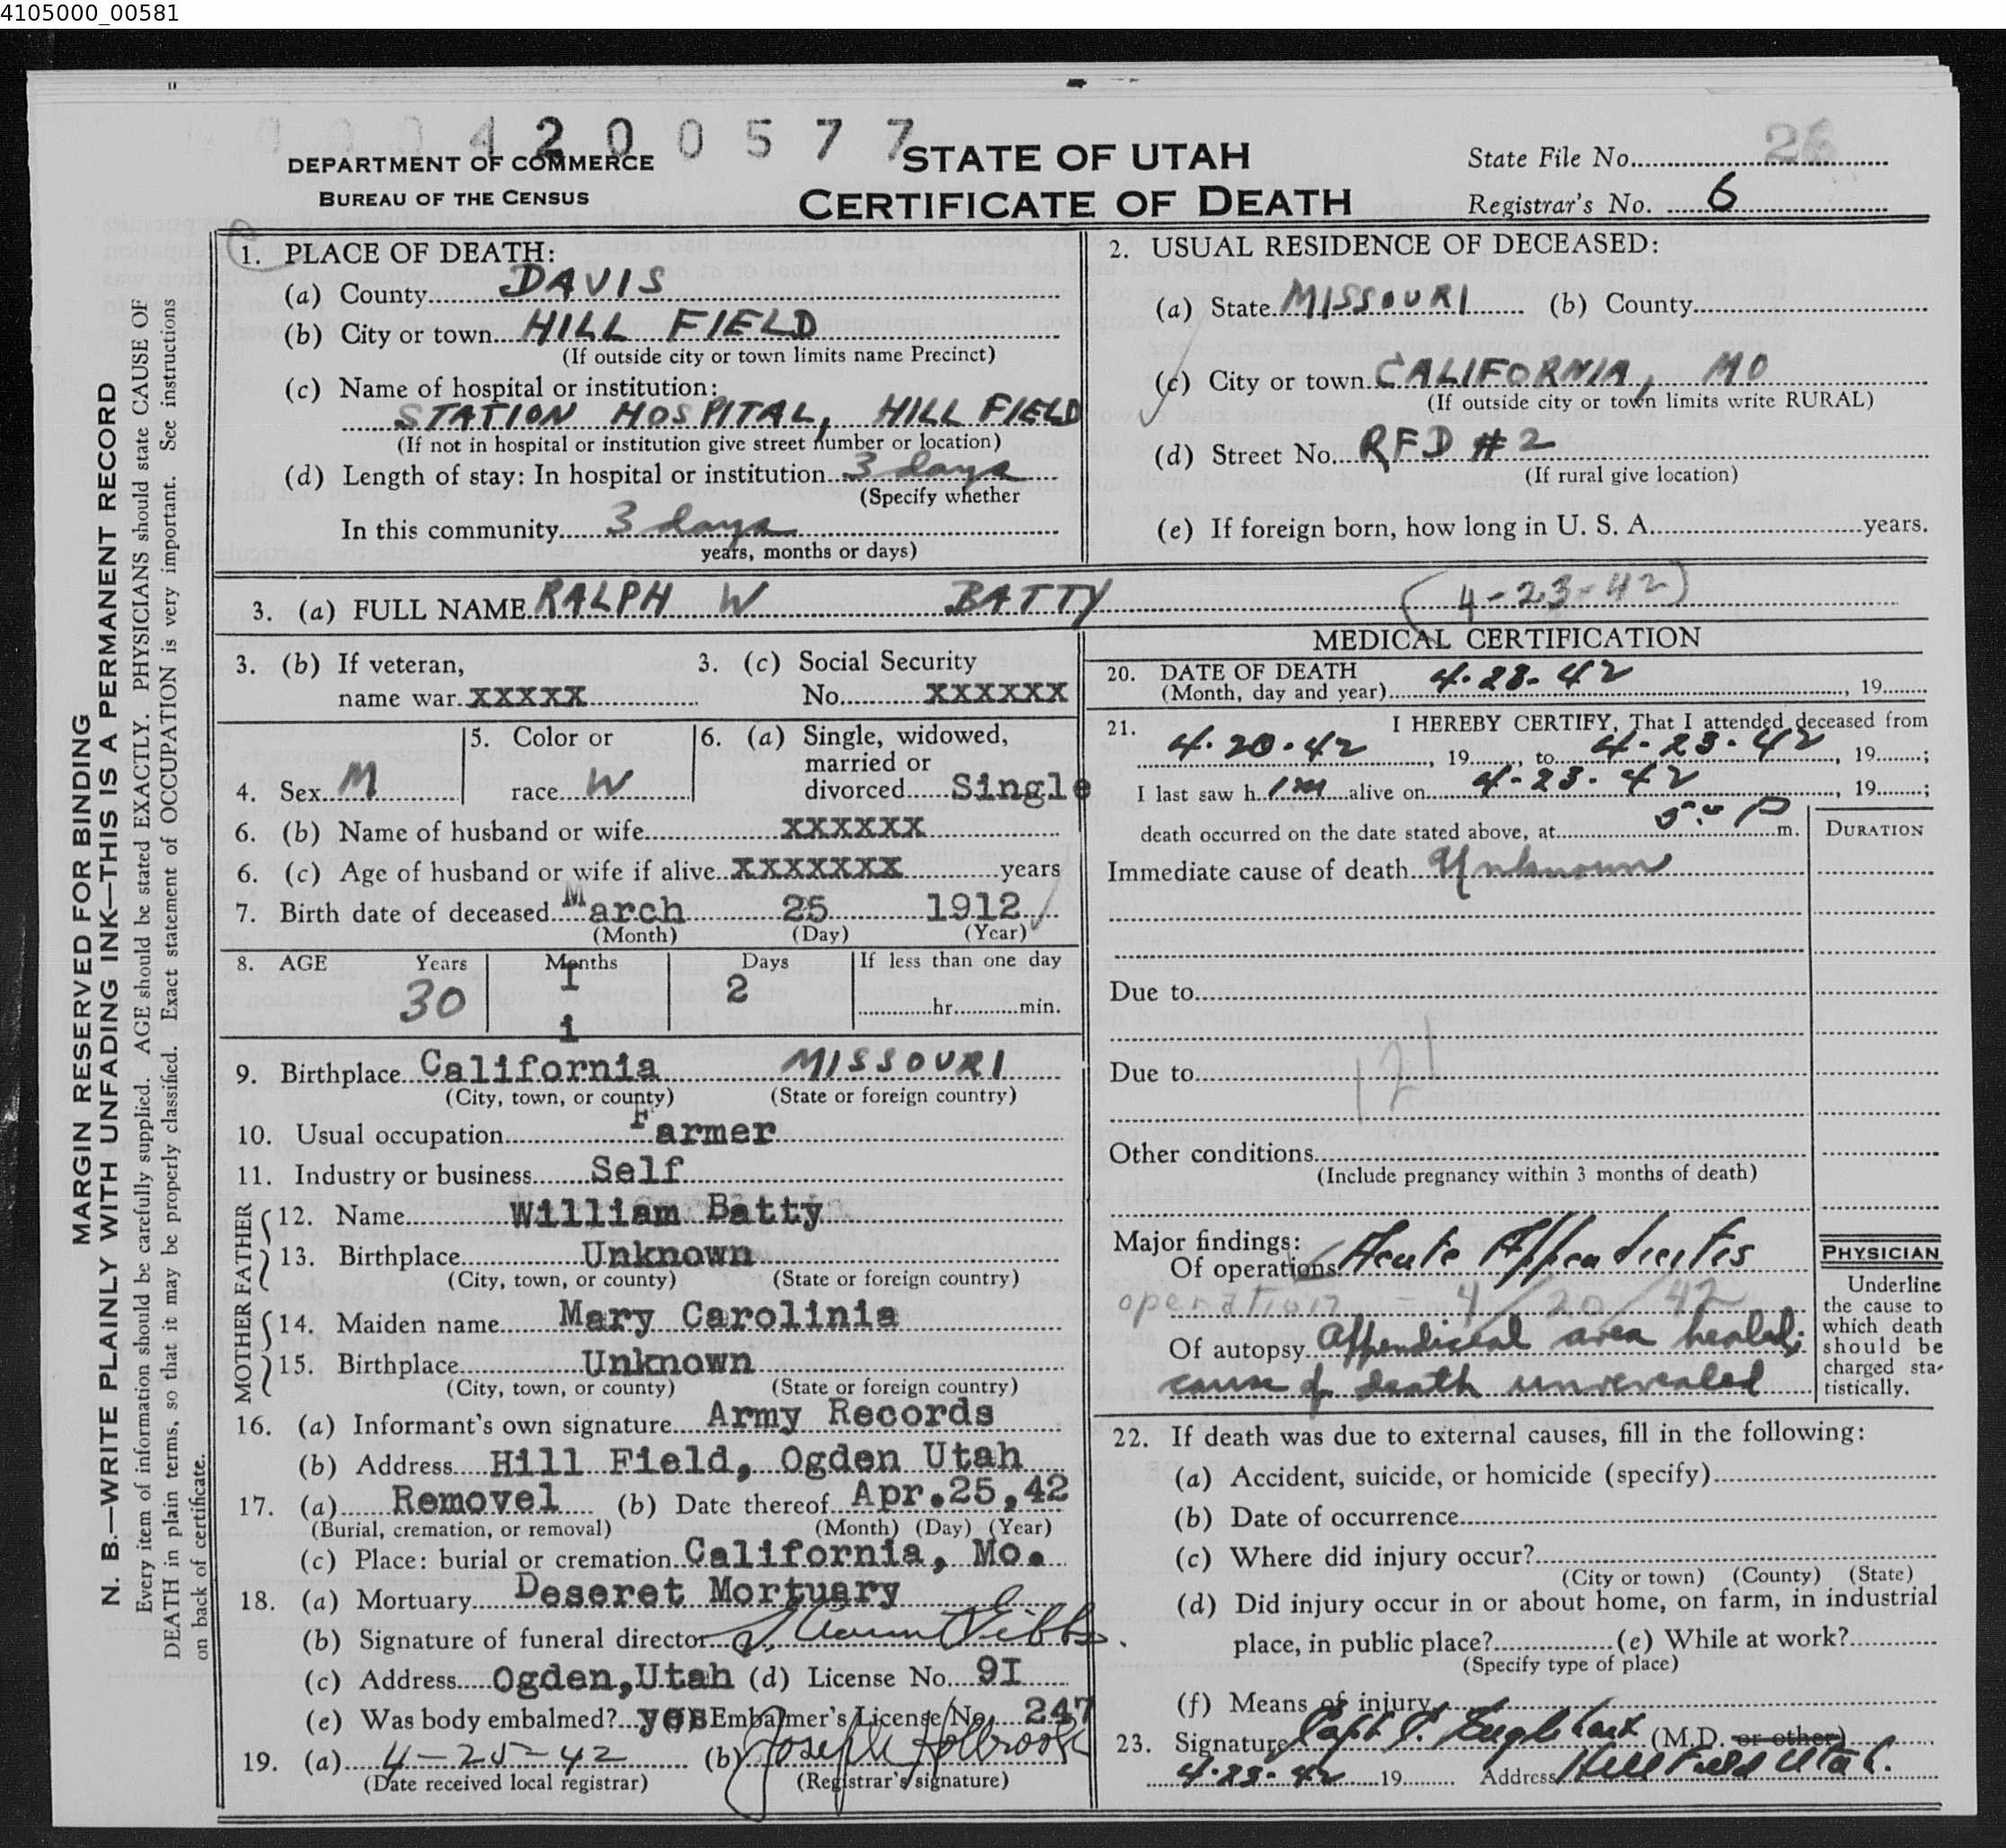 4105000_00581
4 2 0 0 5 7 7
DEPARTMENT OF COMMERCE
BUREAU OF THE CENSUS
STATE OF UTAH
CERTIFICATE OF DEATH
State File No. 26
Registrar's No. 6
MARGIN RESERVED FOR BINDING
N. B.—WRITE PLAINLY WITH UNFADING INK—THIS IS A PERMANENT RECORD
Every item of information should be carefully supplied. AGE should be stated EXACTLY. PHYSICIANS should state CAUSE OF
DEATH in plain terms, so that it may be properly classified. Exact statement of OCCUPATION is very important. See instructions
on back of certificate.
1. PLACE OF DEATH:
(a) County DAVIS
(b) City or town HILL FIELD
(If outside city or town limits name Precinct)
(c) Name of hospital or institution:
STATION HOSPITAL, HILL FIELD
(If not in hospital or institution give street number or location)
(d) Length of stay: In hospital or institution 3 days
(Specify whether
In this community 3 days
years, months or days)
2. USUAL RESIDENCE OF DECEASED:
(a) State MISSOURI (b) County
(c) City or town CALIFORNIA, MO
(If outside city or town limits write RURAL)
(d) Street No. RFD #2
(If rural give location)
(e) If foreign born, how long in U. S. A. years.
3. (a) FULL NAME RALPH W BATTY (4-23-42)
3. (b) If veteran,
name war XXXXX
3. (c) Social Security
No. XXXXXX
4. Sex M
5. Color or
race W
6. (a) Single, widowed,
married or
divorced Single
6. (b) Name of husband or wife XXXXXX
6. (c) Age of husband or wife if alive XXXXXXX years
7. Birth date of deceased March 25 1912
(Month) (Day) (Year)
8. AGE Years Months Days If less than one day
30 1 2 hr. min.
1
9. Birthplace California MISSOURI
(City, town, or county) (State or foreign country)
10. Usual occupation Farmer
11. Industry or business Self
FATHER
12. Name William Batty
13. Birthplace Unknown
(City, town, or county) (State or foreign country)
MOTHER
14. Maiden name Mary Carolinia
15. Birthplace Unknown
(City, town, or county) (State or foreign country)
16. (a) Informant's own signature Army Records
(b) Address Hill Field, Ogden Utah
17. (a) Removel (b) Date thereof Apr.25,42
(Burial, cremation, or removal) (Month) (Day) (Year)
(c) Place: burial or cremation California, Mo.
18. (a) Mortuary Deseret Mortuary
(b) Signature of funeral director
(c) Address Ogden,Utah (d) License No. 9I
(e) Was body embalmed? yes Embalmer's License No. 247
19. (a) 4-25-42 (b) Joseph Holbrook
(Date received local registrar) (Registrar's signature)
MEDICAL CERTIFICATION
20. DATE OF DEATH
(Month, day and year) 4-23-42, 19
21. I HEREBY CERTIFY, That I attended deceased from
4-20-42, 19, to 4-23-42, 19;
I last saw h im alive on 4-23-42, 19;
death occurred on the date stated above, at P m.
DURATION
Immediate cause of death Unknown
Due to
Due to
121
Other conditions
(Include pregnancy within 3 months of death)
Major findings:
Of operations Acute Appendicitis
operation = 4/20/42
Of autopsy Appendiceal area healed;
cause of death unrevealed
PHYSICIAN
Underline
the cause to
which death
should be
charged sta-
tistically.
22. If death was due to external causes, fill in the following:
(a) Accident, suicide, or homicide (specify)
(b) Date of occurrence
(c) Where did injury occur?
(City or town) (County) (State)
(d) Did injury occur in or about home, on farm, in industrial
place, in public place? (e) While at work?
(Specify type of place)
(f) Means of injury
23. Signature Capt P. (M.D. or other)
4-23-42 19 Address Hill Field Utah.